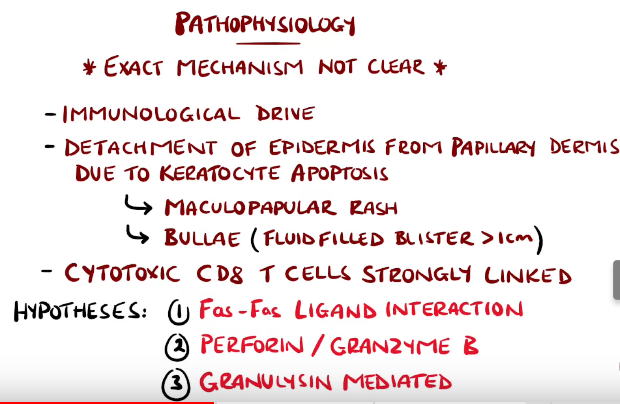 PATHOPHYSIOLOGY
* EXACT MECHANISM NOT CLEAR *
- IMMUNOLOGICAL DRIVE
- DETACHMENT OF EPIDERMIS FROM PAPILLARY DERMIS
DUE TO KERATOCYTE APOPTOSIS
↳ MACULOPAPULAR RASH
↳ BULLAE (FLUID FILLED BLISTER > 1cm)
- CYTOTOXIC CD8 T CELLS STRONGLY LINKED
HYPOTHESES: ① Fas-Fas LIGAND INTERACTION
② PERFORIN / GRANZYME B
③ GRANULYSIN MEDIATED